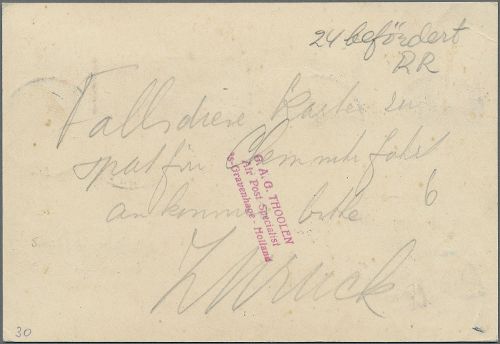 24 befördert
RR
Falls diese Karte zu
spät für
ankommt bitte
6
Zurück
G. A. G. THOOLEN
Air Post Specialist
's-Gravenhage - Holland
30